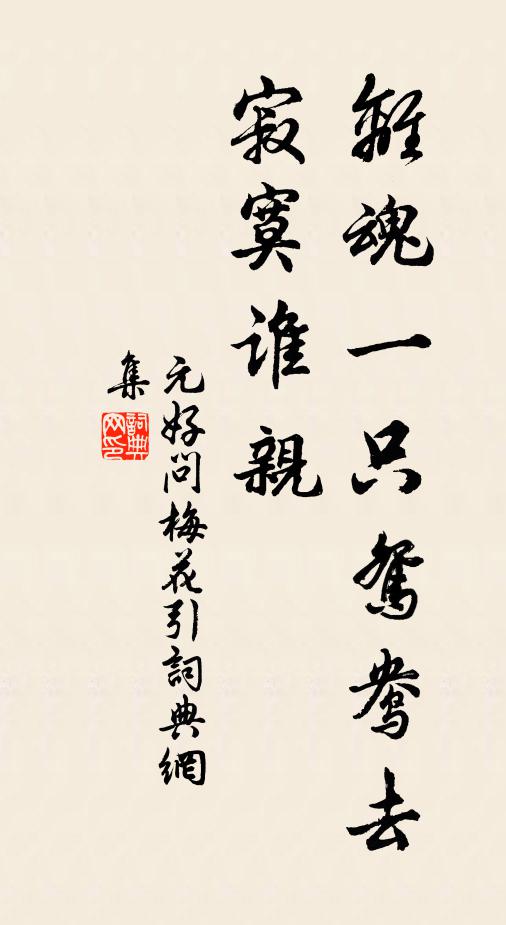 離魂一只鴛鴦去
寂寞誰親
元好問梅花引詞典網
集
詞典网印